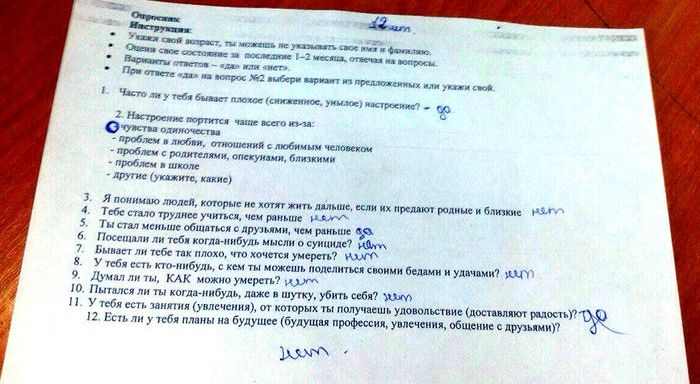 Опросник
12 лет.
Инструкция:
• Укажи свой возраст, ты можешь не указывать свое имя и фамилию.
• Оцени свое состояние за последние 1–2 месяца, отвечая на вопросы.
• Варианты ответов – «да» или «нет».
• При ответе «да» на вопрос №2 выбери вариант из предложенных или укажи свой.
1. Часто ли у тебя бывает плохое (сниженное, унылое) настроение? – да
2. Настроение портится чаще всего из-за:
- чувства одиночества
- проблем в любви, отношений с любимым человеком
- проблем с родителями, опекунами, близкими
- проблем в школе
- другие (укажите, какие)
3. Я понимаю людей, которые не хотят жить дальше, если их предают родные и близкие нет
4. Тебе стало труднее учиться, чем раньше нет
5. Ты стал меньше общаться с друзьями, чем раньше да
6. Посещали ли тебя когда-нибудь мысли о суициде? нет
7. Бывает ли тебе так плохо, что хочется умереть? нет
8. У тебя есть кто-нибудь, с кем ты можешь поделиться своими бедами и удачами? нет
9. Думал ли ты, КАК можно умереть? нет
10. Пытался ли ты когда-нибудь, даже в шутку, убить себя? нет
11. У тебя есть занятия (увлечения), от которых ты получаешь удовольствие (доставляют радость)? да
12. Есть ли у тебя планы на будущее (будущая профессия, увлечения, общение с друзьями)?
нет.